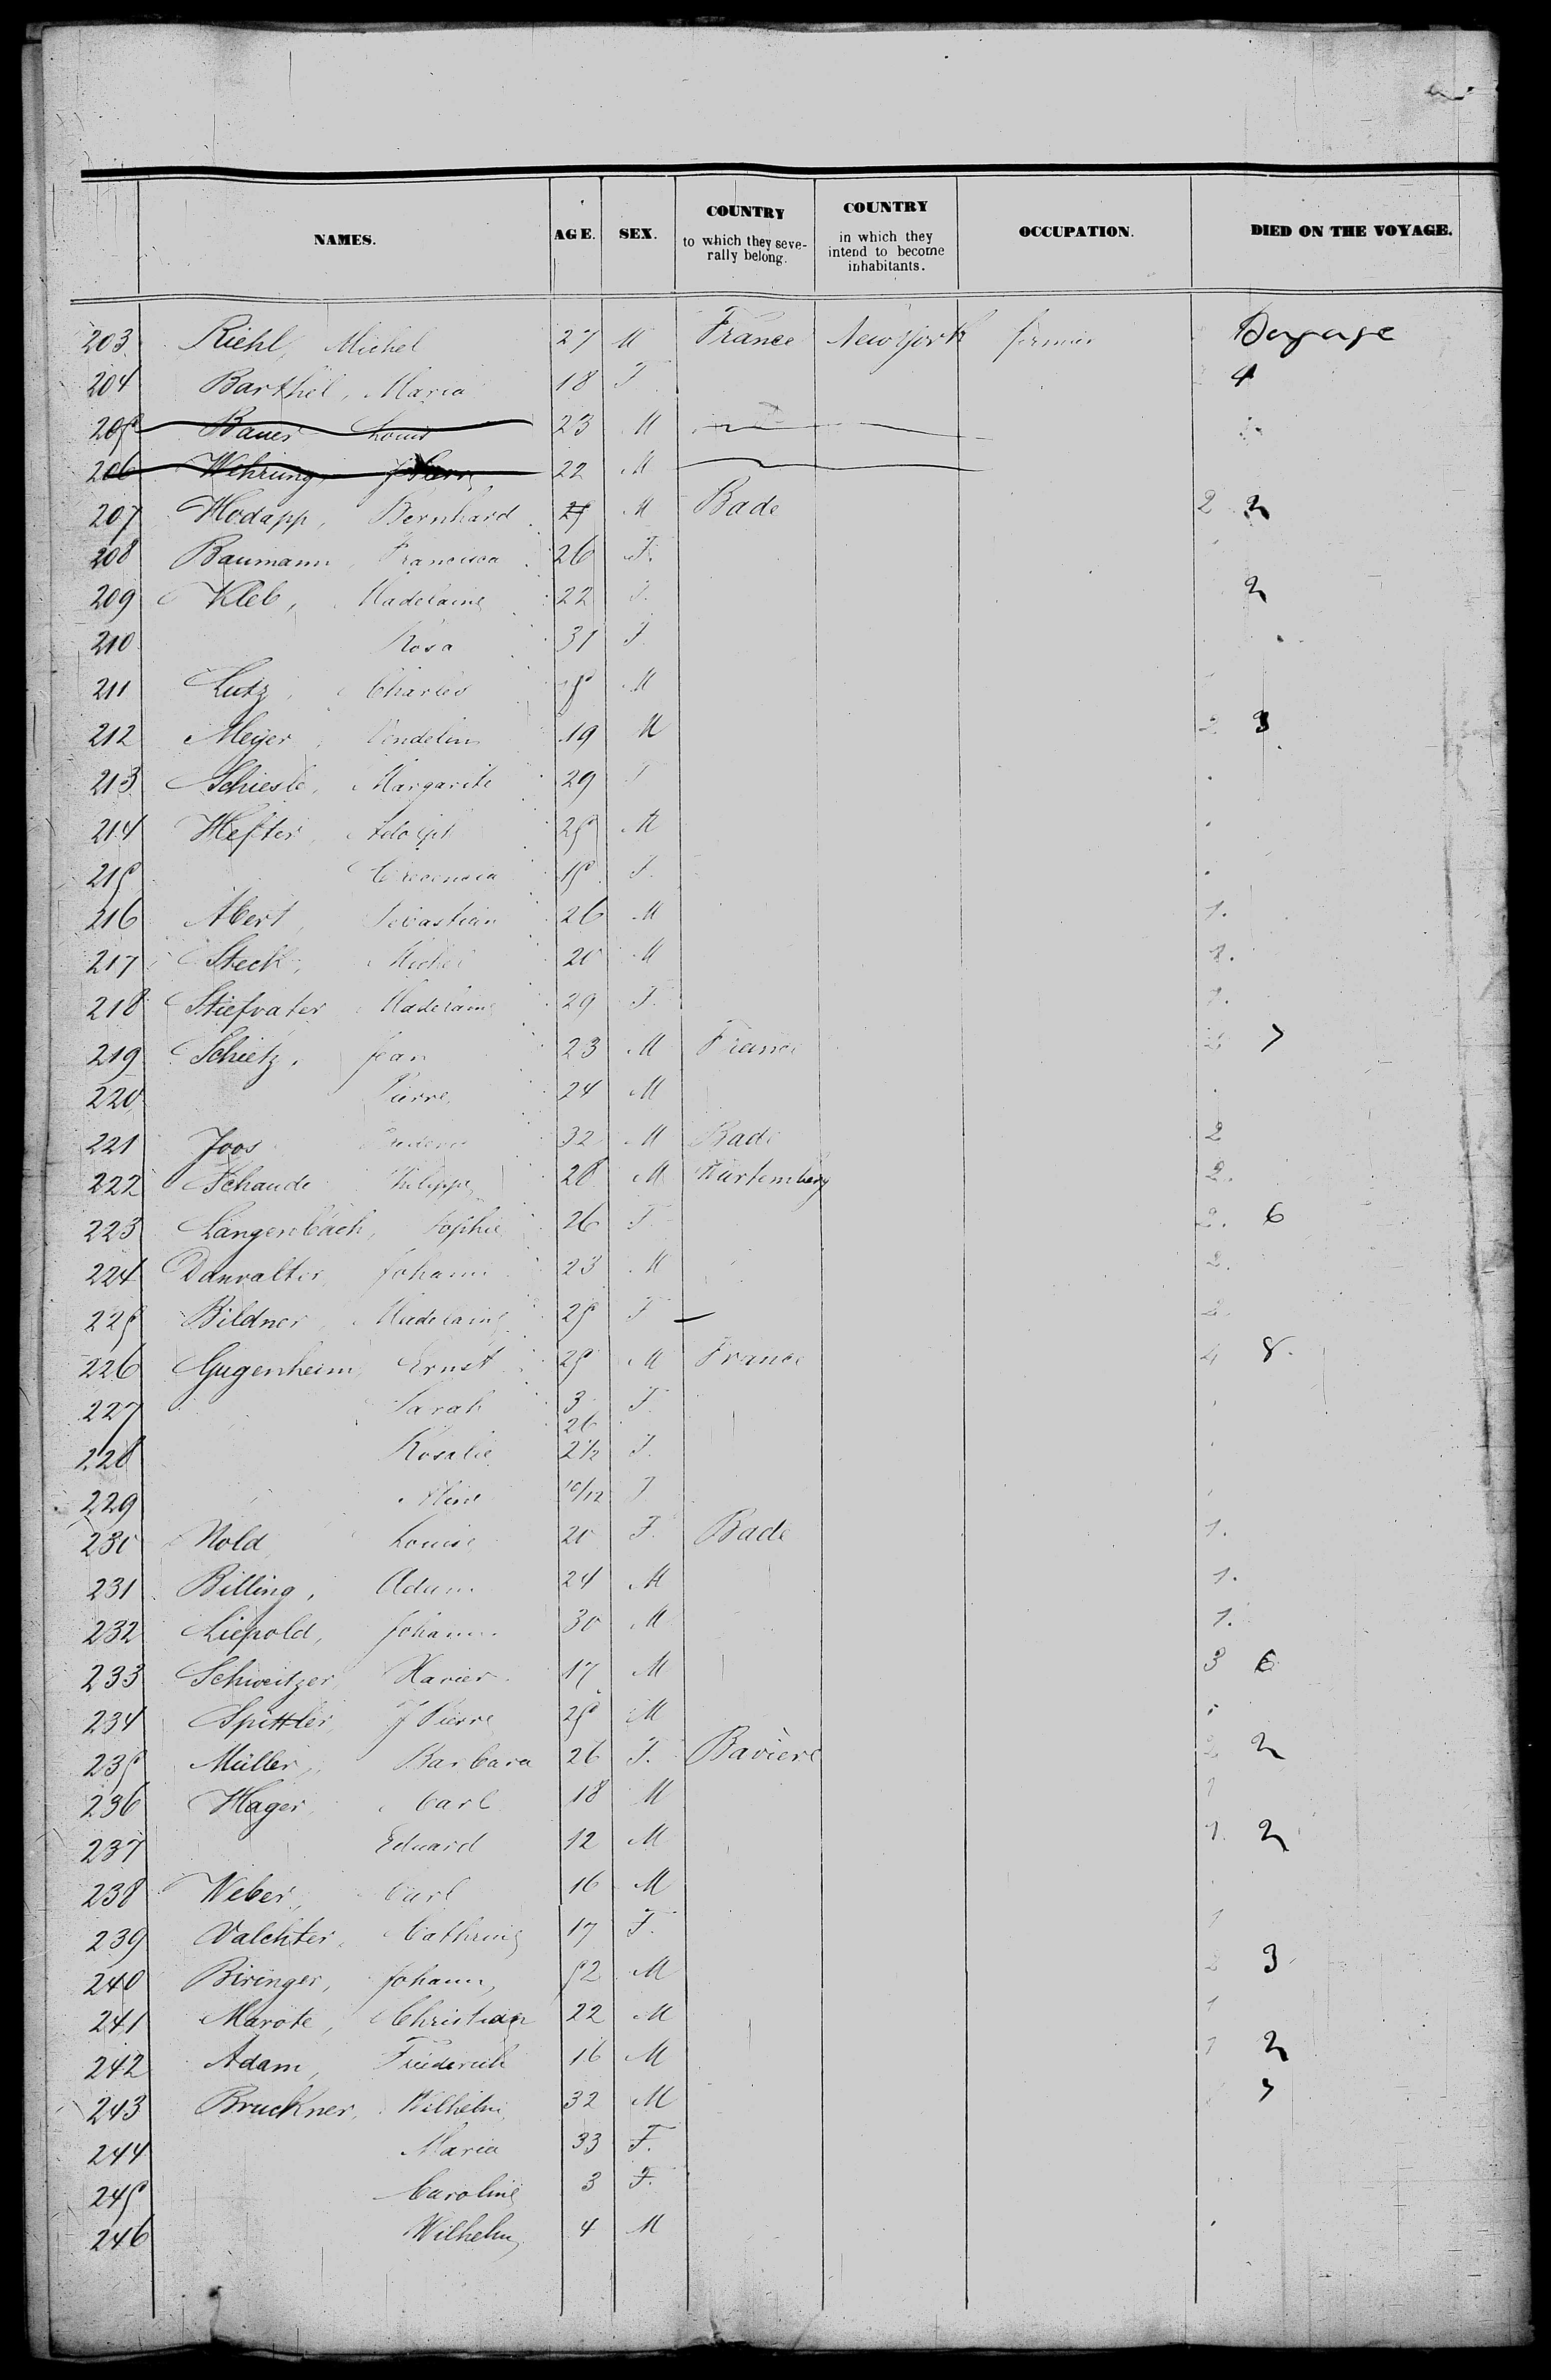 NAMES. AGE. SEX. COUNTRY to which they seve- rally belong. COUNTRY in which they intend to become inhabitants. OCCUPATION. DIED ON THE VOYAGE.
203 Riehl, Michel 27 M France New York
204 Barthel, Maria 18 F 4
205 Bauer Louis 23 M
206 Wehrung J Pierre 22 M
207 Hodapp, Bernhard M Bade 2 2
208 Baumann, Francisca 26 F.
209 Kleb, Madelaine 22 F. 2
210 Rosa 31 F.
211 Lutz, Charles M
212 Meyer, Vendelin 19 M 2 3
213 Schiesle, Margarite 29 F
214 Hefter, Adolph 25 M
215 Crecencia 15 F.
216 Abert, Sebastian 26 M 1.
217 Steck, Michel 20 M 1.
218 Stiefvater Madelaine 29 F. 1.
219 Schietz, Jean 23 M France 2 7
220 Pierre 24 M
221 Joos 32 M Bade 2
222 Schaude Philippe 28 M Wurtemberg 2.
223 Langenbach, Sophie 26 F. 2. 6
224 Danvalter, Johann 23 M 2.
225 Bildner, Madelaine 25 F 2.
226 Gugenheim, Ernst 25 M France 4 8.
227 Sarah 3 F.
26
228 Rosalie 2½ F.
229 10/12 F
230 Nold, Louise 20 F. Bade 1.
231 Billing, Adam 24 M 1.
232 Liepold, Johann 30 M 1.
233 Schweitzer, Xavier 17 M 3 6
234 Spittler, J Pierre 25 M
235 Müller, Barbara 26 F. Baviere 2 2
236 Hager, Carl 18 M 1
237 Eduard 12 M 1. 2
238 Weber, Carl 16 M
239 Valchter, Cathrine 17 F. 1
240 Biringer, Johann, 52 M 2 3
241 Marote, Christian 22 M 1
242 Adam, Friederich 16 M 1 2
243 Bruckner, Wilhelm 32 M 7
244 Maria 33 F.
245 Caroline 3 F.
246 Wilhelm 4 M